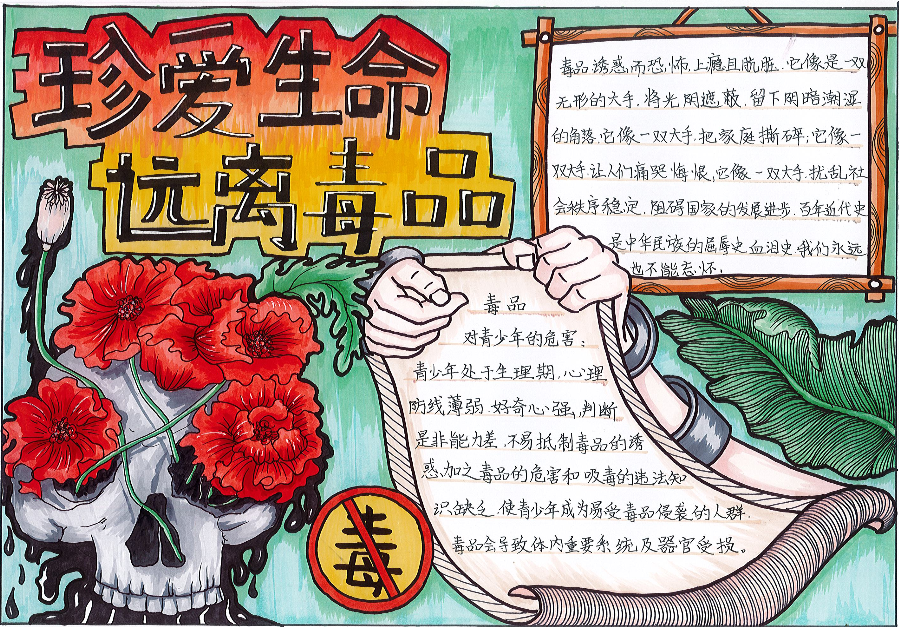 珍爱生命
远离毒品
毒品诱惑而恐怖上瘾且肮脏.它像是一双
无形的大手.将光阴遮蔽.留下阴暗潮湿
的角落.它像一双大手.把家庭撕碎;它像一
双大手.让人们痛哭悔恨.它像一双大手.扰乱社
会秩序稳定.阻碍国家的发展进步.百年近代史
是中华民族的屈辱史.血泪史.我们永远
也不能忘怀.
毒品
对青少年的危害:
青少年处于生理期.心理
防线薄弱.好奇心强,判断
是非能力差.不易抵制毒品的诱
惑.加之毒品的危害和吸毒的违法知
识缺乏.使青少年成为易受毒品侵袭的人群.
毒品会导致体内重要系统及器官受损。
毒